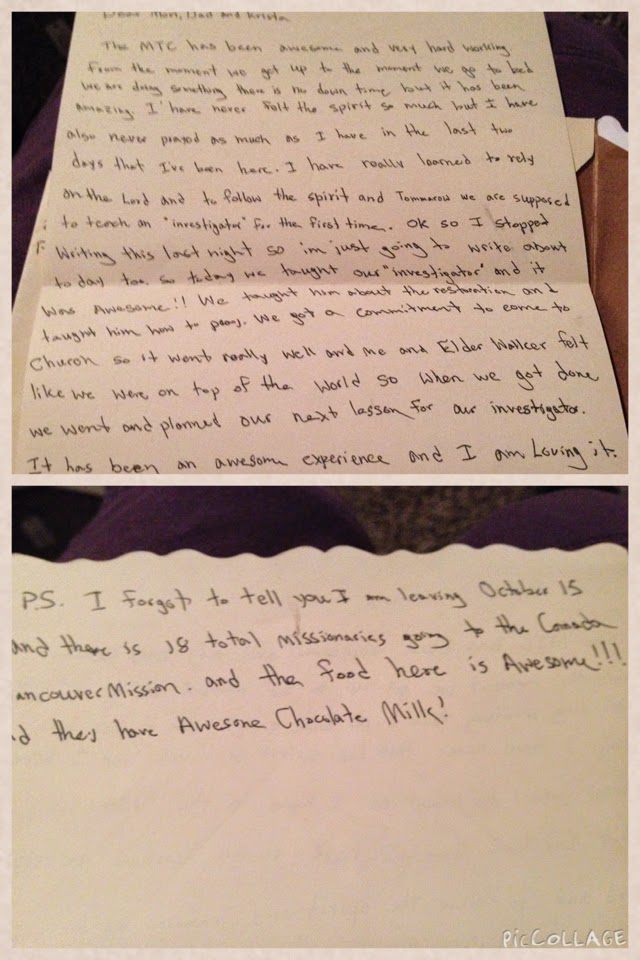 Dear Mom, Dad and Krista
The MTC has been awesome and very hard working.
From the moment we get up to the moment we go to bed
we are doing something there is no down time but it has been
amazing. I have never felt the spirit so much but I have
also never prayed as much as I have in the last two
days that I've been here. I have really learned to rely
on the Lord and to follow the spirit and Tommarow we are supposed
to teach an "investigator" for the first time. OK so I stopped
Writing this last night so im just going to write about
today too. so today we taught our "investigator" and it
was Awesome!! We taught him about the restoration and
taught him how to pray. We got a commitment to come to
Church so it went really well and me and Elder Walker felt
like we were on top of the world so when we got done
we went and planned our next lesson for our investigator.
It has been an awesome experience and I am Loving it.
P.S. I forgot to tell you I am leaving October 15
and there is 18 total missionaries going to the Canada
ancouver Mission. and the food here is Awesome!!!
d they have Awesome Chocolate Milk!
PicCollage